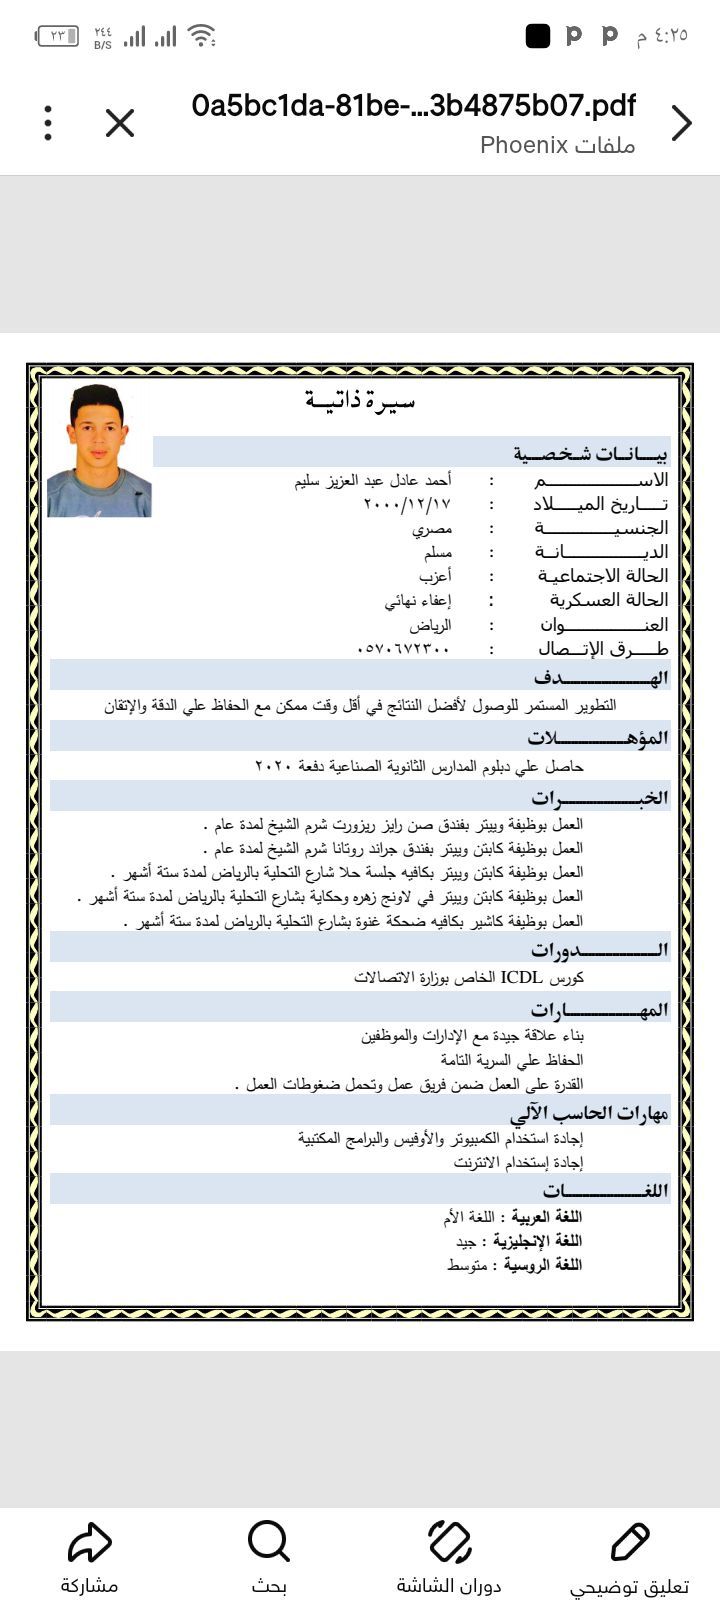 ٤:٢٥ م
٢٤٤ B/S
٢٣
0a5bc1da-81be-...3b4875b07.pdf
ملفات Phoenix
سيرة ذاتية
بيانات شخصية
الاسم : أحمد عادل عبد العزيز سليم
تاريخ الميلاد : ٢٠٠٠/١٢/١٧
الجنسية : مصري
الديانة : مسلم
الحالة الاجتماعية : أعزب
الحالة العسكرية : إعفاء نهائي
العنوان : الرياض
طرق الإتصال : ٠٥٧٠٦٧٢٣٠٠
الهدف
التطوير المستمر للوصول لأفضل النتائج في أقل وقت ممكن مع الحفاظ علي الدقة والإتقان
المؤهلات
حاصل علي دبلوم المدارس الثانوية الصناعية دفعة ٢٠٢٠
الخبرات
العمل بوظيفة وييتر بفندق صن رايز ريزورت شرم الشيخ لمدة عام .
العمل بوظيفة كابتن وييتر بفندق جراند روتانا شرم الشيخ لمدة عام .
العمل بوظيفة كابتن وييتر بكافيه جلسة حلا شارع التحلية بالرياض لمدة ستة أشهر .
العمل بوظيفة كابتن وييتر في لاونج زهره وحكاية بشارع التحلية بالرياض لمدة ستة أشهر .
العمل بوظيفة كاشير بكافيه ضحكة غنوة بشارع التحلية بالرياض لمدة ستة أشهر .
الدورات
كورس ICDL الخاص بوزارة الاتصالات
المهارات
بناء علاقة جيدة مع الإدارات والموظفين
الحفاظ علي السرية التامة
القدرة على العمل ضمن فريق عمل وتحمل ضغوطات العمل .
مهارات الحاسب الآلي
إجادة استخدام الكمبيوتر والأوفيس والبرامج المكتبية
إجادة إستخدام الانترنت
اللغات
اللغة العربية : اللغة الأم
اللغة الإنجليزية : جيد
اللغة الروسية : متوسط
تعليق توضيحي
دوران الشاشة
بحث
مشاركة